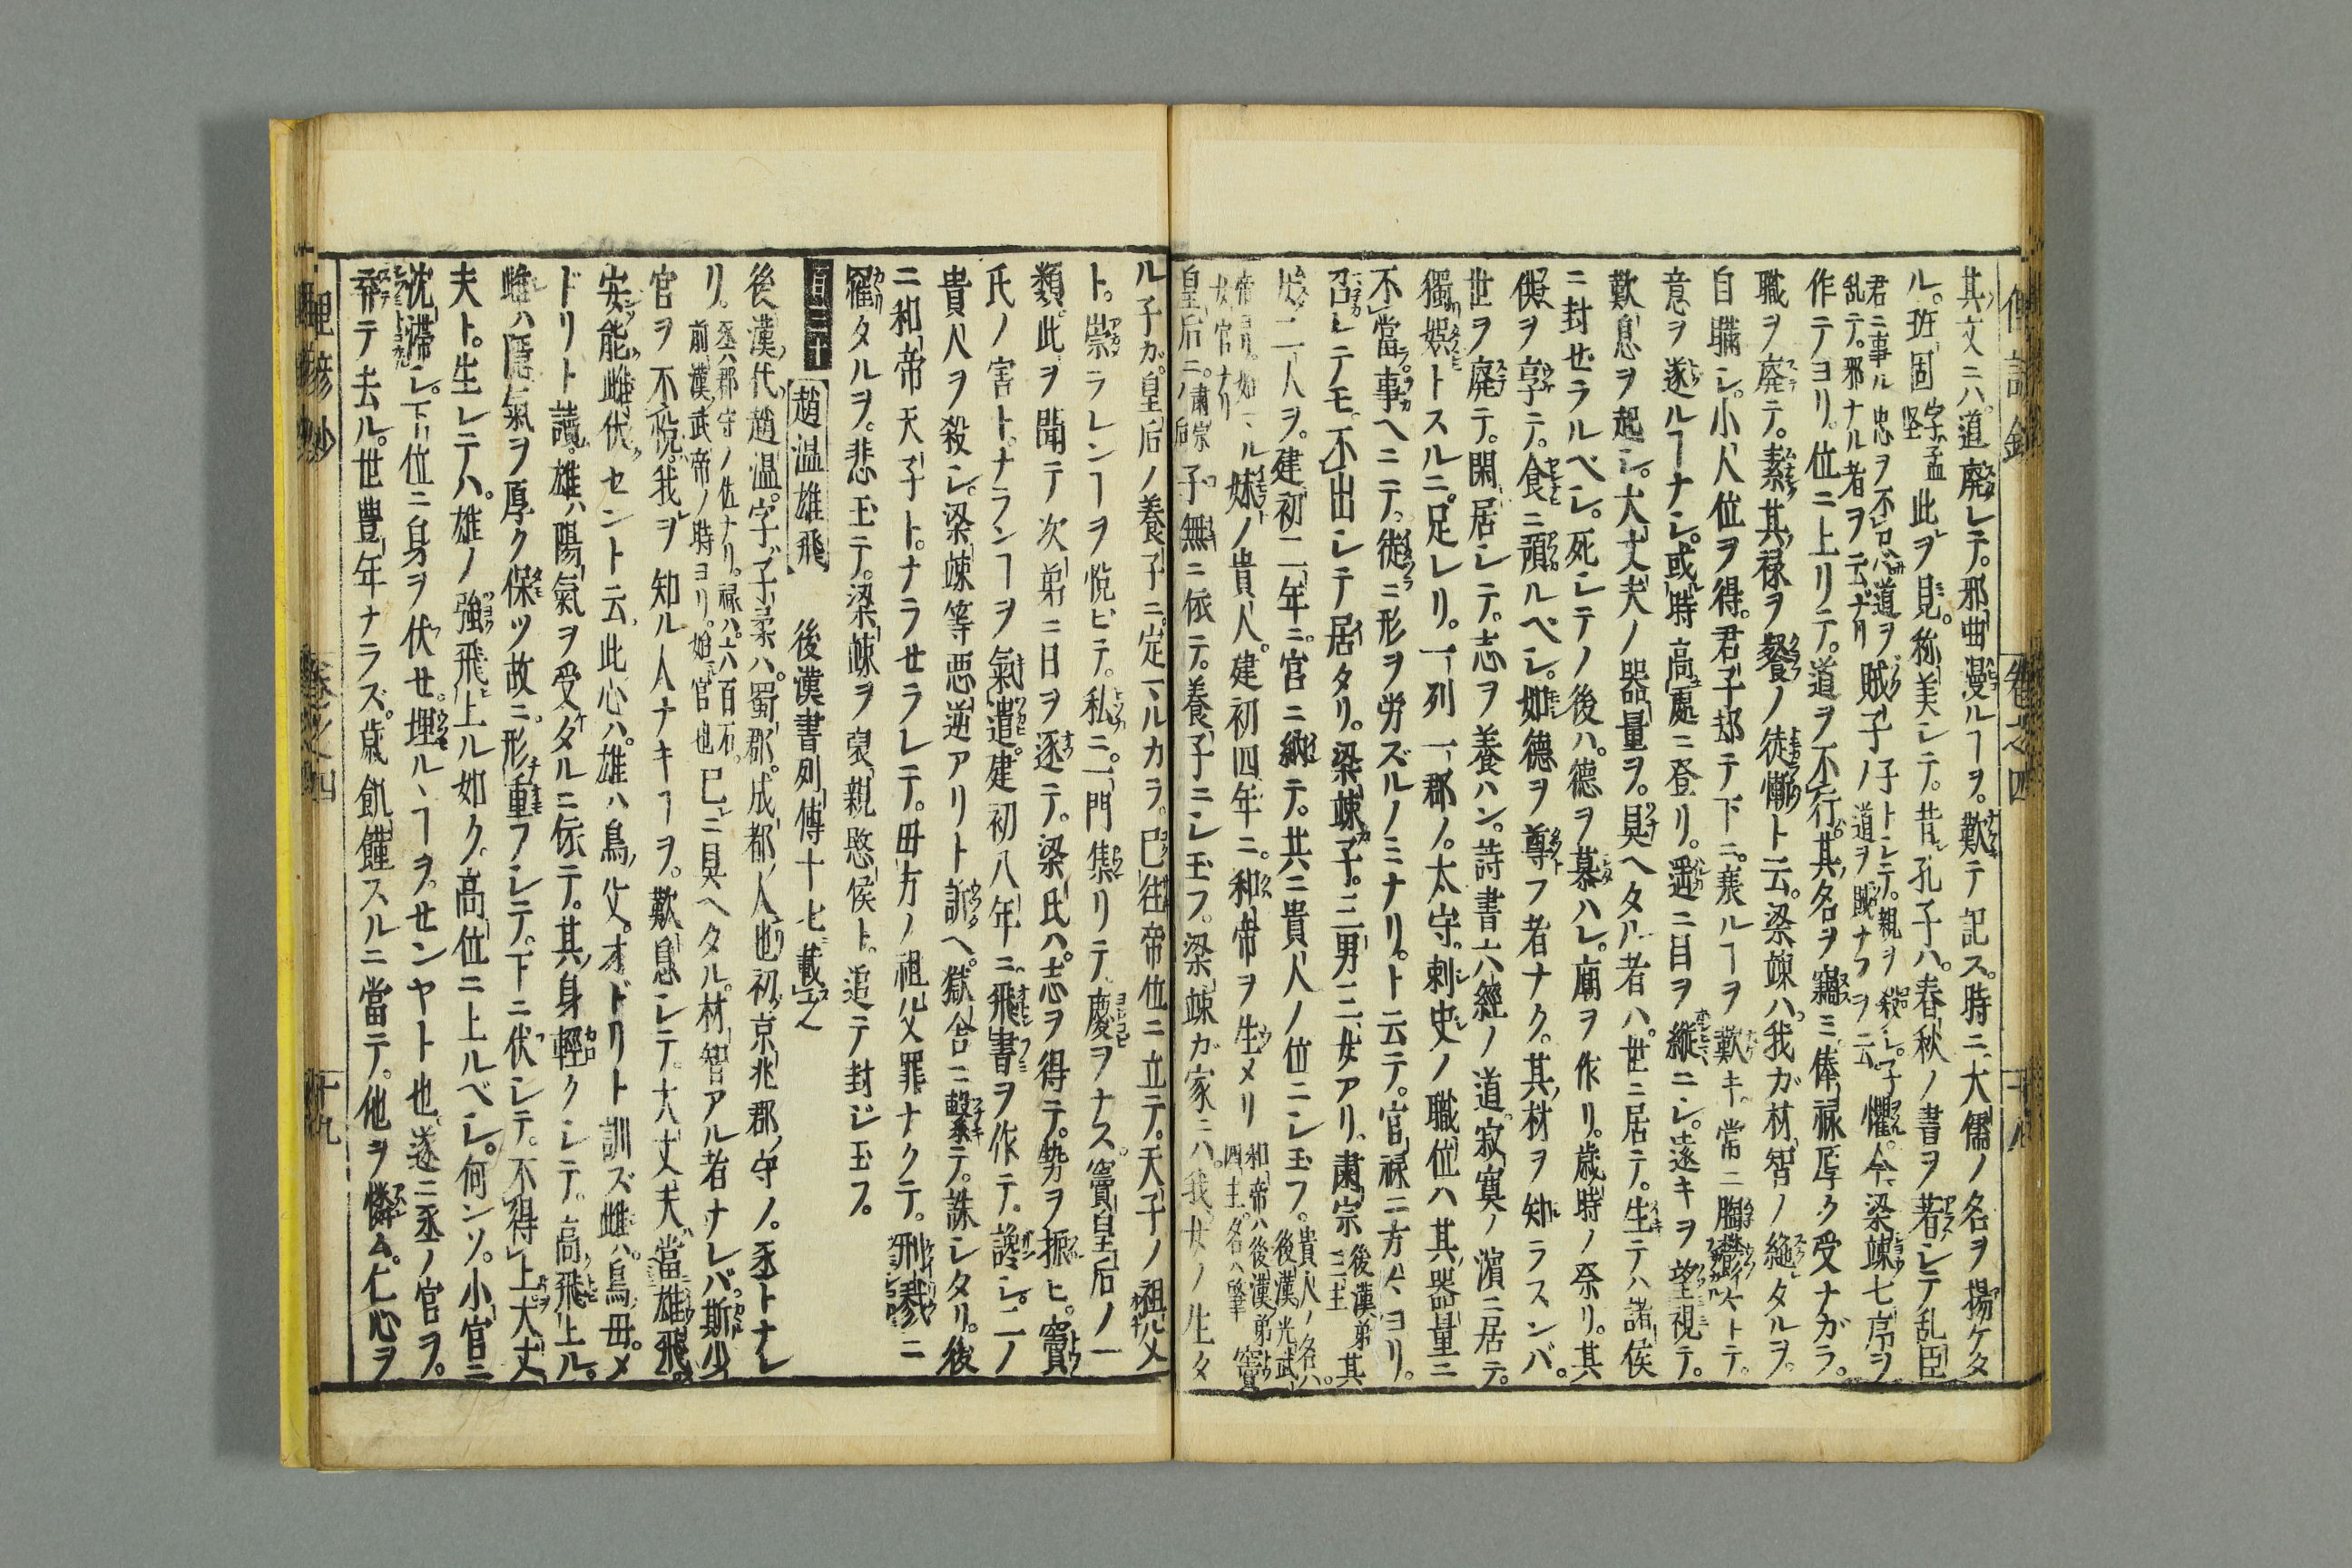 其文ニハ。道廃レテ。邪曲漫ルヿヲ。歎テ記ス。時ニ大儒ノ名ヲ揚ケタ
ル。班固字孟堅此ヲ見。称美シテ。昔孔子ハ。春秋ノ書ヲ著シテ乱臣
君ニ事ル忠ヲ不レ忍道ヲ乱テ。邪ナル者ヲ云ナリ賊子ノ子トレテ。親ヲ殺シ。子道ヲ賊ナフヲ云懼。今梁竦七序ヲ
作テヨリ。位ニ上リテ。道ヲ不行其名ヲ竊ミ俸禄厚ク受ナガラ。
職ヲ廃テ。素其禄ヲ餐ノ徒慚ト云。梁竦ハ。我ガ材智ノ絶タルヲ。
自職シ。小人位ヲ得。君子却テ下ニ。蓑ルヿヲ歎キ。常ニ胸鬱々トテ。
意ヲ遂ルヿナシ。或時高處ニ登リ。遥ニ目ヲ縦ニシ。遠キヲ望視テ。
歎息ヲ起シ。大丈夫ノ器量ヲ。具ヘタル者ハ。世ニ居テ。生テハ諸侯
ニ封ぜラルベシ。死シテノ後ハ。德ヲ慕ハレ。廟ヲ作リ。歳時ノ祭リ。其
供ヲ享テ。食ニ預ルベシ。如德ヲ尊フ者ナク。其材ヲ知ラスンバ。
世ヲ廃テ。閑居シテ。志ヲ養ハン。詩書六經ノ道。寂寞ノ濱ニ居テ。
獨娯トスルニ。足レリ。一列一郡ノ。太守。刺史ノ職位ハ其器量ニ
不當事ヘニテ。徒ニ形ヲ労ズルノミナリ。ト云テ。官禄ニ方々ヨリ。
召レテモ。不出シテ居タリ。梁竦子。三男三女アリ。粛宗後漢弟三主其
女二人ヲ。建初二年ニ。官ニ納テ。共ニ貴人ノ位ニシ玉フ。貴人ノ名ハ。後漢光武
帝ヨリ。始ル女官ナリ妹ノ貴人。建初四年ニ。和帝ヲ生メリ和帝ハ後漢弟四主。名ハ肇竇
皇后ニ。粛宗后子無ニ依テ。養子ニシ玉フ。梁竦ガ家ニハ。我女ノ生タ
ル子ガ。皇后ノ養子ニ。定ルカラ。已往帝位ニ立テ。天子ノ祖父
ト。崇ラレンヿヲ悦ビテ。私ニ。一門集リテ慶ヲナス。竇皇后ノ一
類。此ヲ聞テ次弟ニ日ヲ逐テ。梁氏ハ。志ヲ得テ。勢ヲ振ヒ。竇
氏ノ害ト。ナランヿヲ氣遣。建初八年ニ。飛書ヲ作テ。讒シ。二ノ
貴人ヲ殺シ。梁竦等悪逆アリト訴ヘ。獄舎ニ繋テ。誅シタリ。後
ニ和帝天子ト。ナラせラレテ。毋方ノ祖父罪ナクテ。刑戮ニ
罹タルヲ。悲玉テ。梁竦ヲ褒親愍侯ト。追テ封ジ玉フ。
百三十 趙温雄飛 後漢書列傳十七載之
後漢代。趙温。字ハ子柔ハ。蜀郡。成都人也。初京兆郡守ノ。丞トナレ
リ。丞ハ郡守ノ佐ナリ。禄ハ。六百石。前漢武帝ノ時ヨリ。始官也已ニ具ヘタル。材智アル者ナレバ。斯少
官ヲ不悦。我ヲ知ル人ナキヿヲ。歎息シテ。大丈夫當雄飛。
安能雌伏セント云。此心ハ。雄ハ鳥父。オドリト訓ズ雌ハ。鳥毋。メ
ドリト讀。雄ハ陽氣ヲ受タルニ依テ。其身輕クシテ。高飛上ル。
雌ハ隱氣ヲ厚ク保ツ故ニ。形重フシテ。下ニ伏シテ。不得上。大丈
夫ト。生レテハ。雄ノ強飛上ル如ク。高位ニ上ルベシ。何ンソ。小官ニ
沈滞シ。下位ニ身ヲ伏せ。埋ルヽヿヲ。せンヤト也。遂ニ丞ノ官ヲ。
弃テ去ル。世豊年ナラズ。歳飢饉スルニ當テ。他ヲ憐ム。仁心ヲ
卷之四
十九